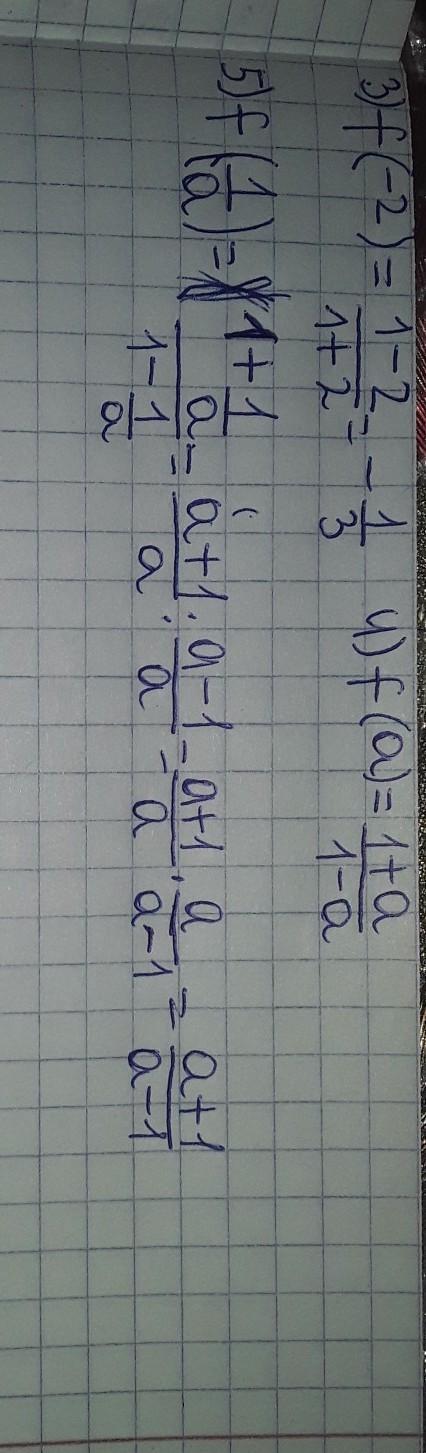 3) f(-2) = \frac{1-2}{1+2} = -\frac{1}{3} 4) f(a) = \frac{1+a}{1-a}
5) f(\frac{1}{a}) = \frac{1+\frac{1}{a}}{1-\frac{1}{a}} = \frac{a+1}{a} : \frac{a-1}{a} = \frac{a+1}{a} \cdot \frac{a}{a-1} = \frac{a+1}{a-1}